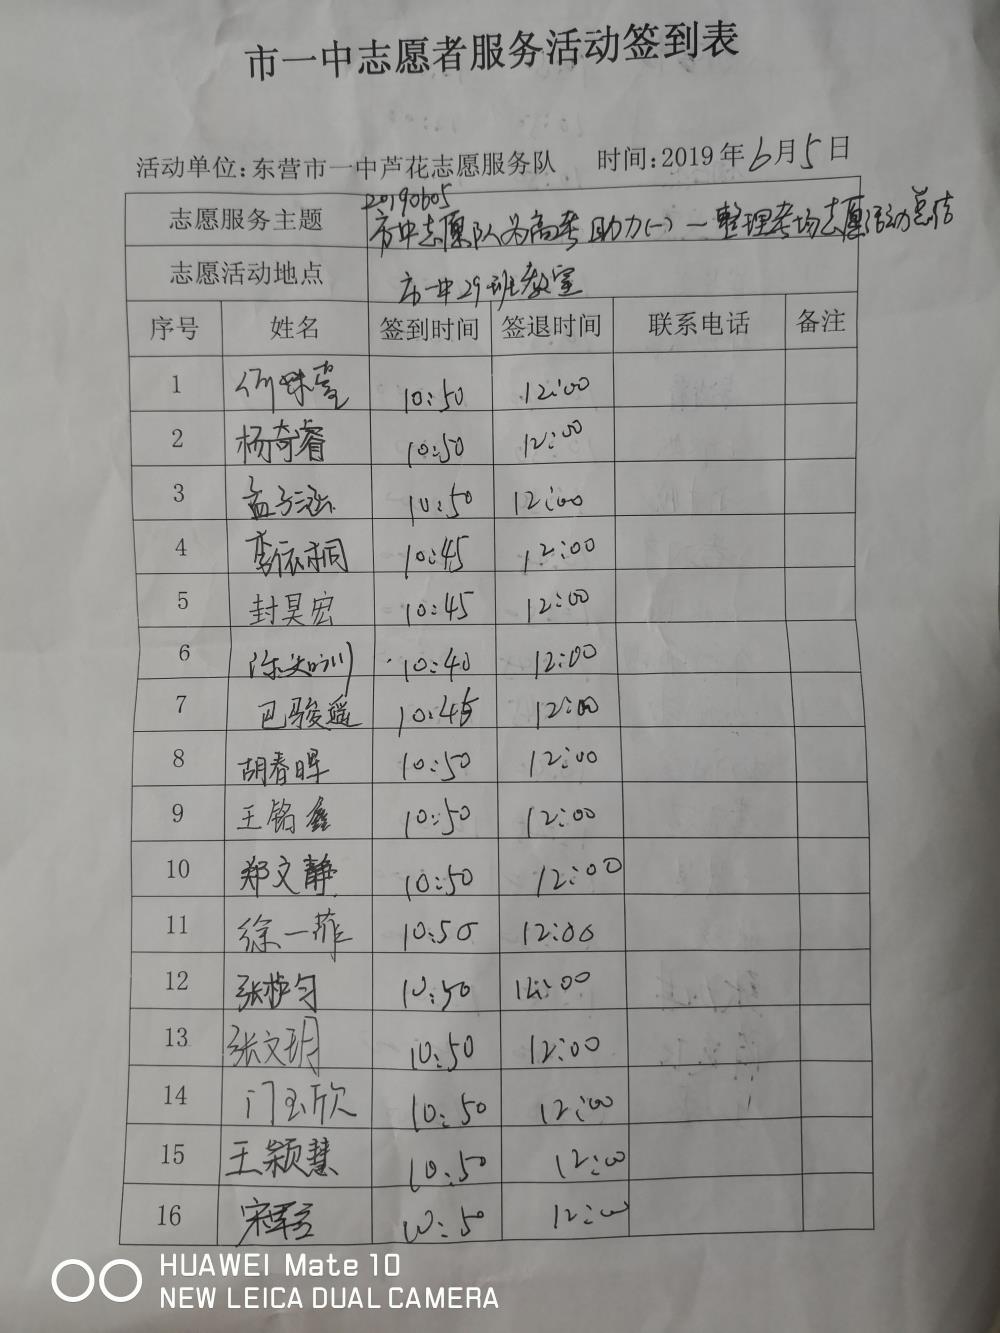 市一中志愿者服务活动签到表
活动单位:东营市一中芦花志愿服务队 时间:2019年6月5日
20190605
志愿服务主题 市中志愿队为高考助力(一)一整理考场志愿活动总结
志愿活动地点 市一中29班教室
序号 姓名 签到时间 签退时间 联系电话 备注
1 10:50 12:00
2 杨奇睿 10:50 12:00
3 孟子涵 10:50 12:00
4 李依桐 10:45 12:00
5 封昊宏 10:45 12:00
6 陈知训 10:40 12:00
7 巴骏遥 10:45 12:00
8 胡春晖 10:50 12:00
9 王铭鑫 10:50 12:00
10 郑文静 10:50 12:00
11 徐一菲 10:50 12:00
12 张 匀 10:50 12:00
13 张文玥 10:50 12:00
14 门玉欣 10:50 12:00
15 王颖慧 10:50 12:00
16 宋 10:50 12:00
HUAWEI Mate 10
NEW LEICA DUAL CAMERA